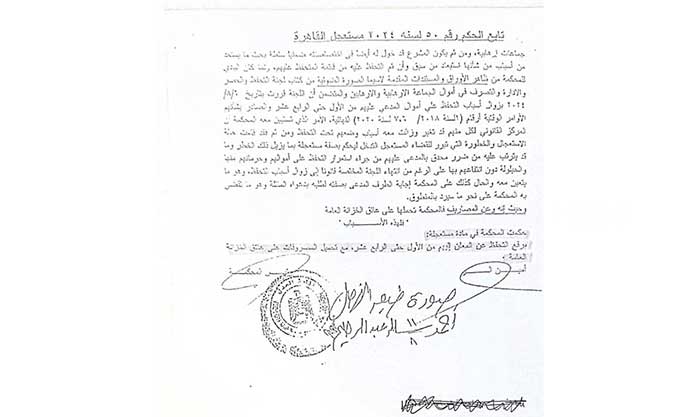 تابع الحكم رقم ٥٠ لسنه ٢٠٢٤ مستعجل القاهرة
جماعات إرهابية، ومن ثم يكون المشرع قد خول له أيضا في اختصاصه ضمنيا سلطة بحث ما يستجد
من أسباب من شأنها استبعاد من سبق وأن تم التحفظ عليه من قائمة المتحفظ عليهم، ولما كان البادي
للمحكمة من ظاهر الأوراق والمستندات المقدمة لاسيما الصورة الضوئية من كتاب لجنة التحفظ والحصر
والادارة والتصرف في أموال الجماعة الإرهابية والإرهابين والمتضمن أن اللجنة قررت بتاريخ
٢٠٢٤ بزوال أسباب التحفظ على أموال المدعي عليهم من الأول حتى الرابع عشر والصادر بشأنهم
الأوامر الوقتية أرقام الأمر الذي تستبين معه المحكمة أن
المركز القانوني لكل منهم قد تغير وزالت معه أسباب وضعهم تحت التحفظ ومن ثم فقد قامت حالة
الاستعجال والخطورة التي تبرر للقضاء المستعجل التدخل ليحكم بصفة مستعجلة بما يزيل ذلك الخطر وما
قد يترتب عليه من ضرر محدق بالمدعى عليهم من جراء استمرار التحفظ على أموالهم وحرمانهم منها
والحيلولة دون انتفاعهم بها على الرغم من انتهاء اللجنة المختصة قانونا إلى زوال أسباب التحفظ، وهو ما
يتعين معه والحال كذلك على المحكمة إجابة الطرف المدعى بصفته لطلبه بدعواه الماثلة وهو ما تقضي
به المحكمة على نحو ما سيرد بالمنطوق.
وحيث إنه وعن المصاريف فالمحكمة تحملها على عاتق الخزانة العامة
"فلهذه الأسباب"
حكمت المحكمة في مادة مستعجلة:
برفع التحفظ عن المعلن إليهم من الأول حتى الرابع عشر، مع تحميل المصروفات على عاتق الخزانة
العامة.
أمين السر رئيس المحكمة
صورة طبق الأصل
أحمد